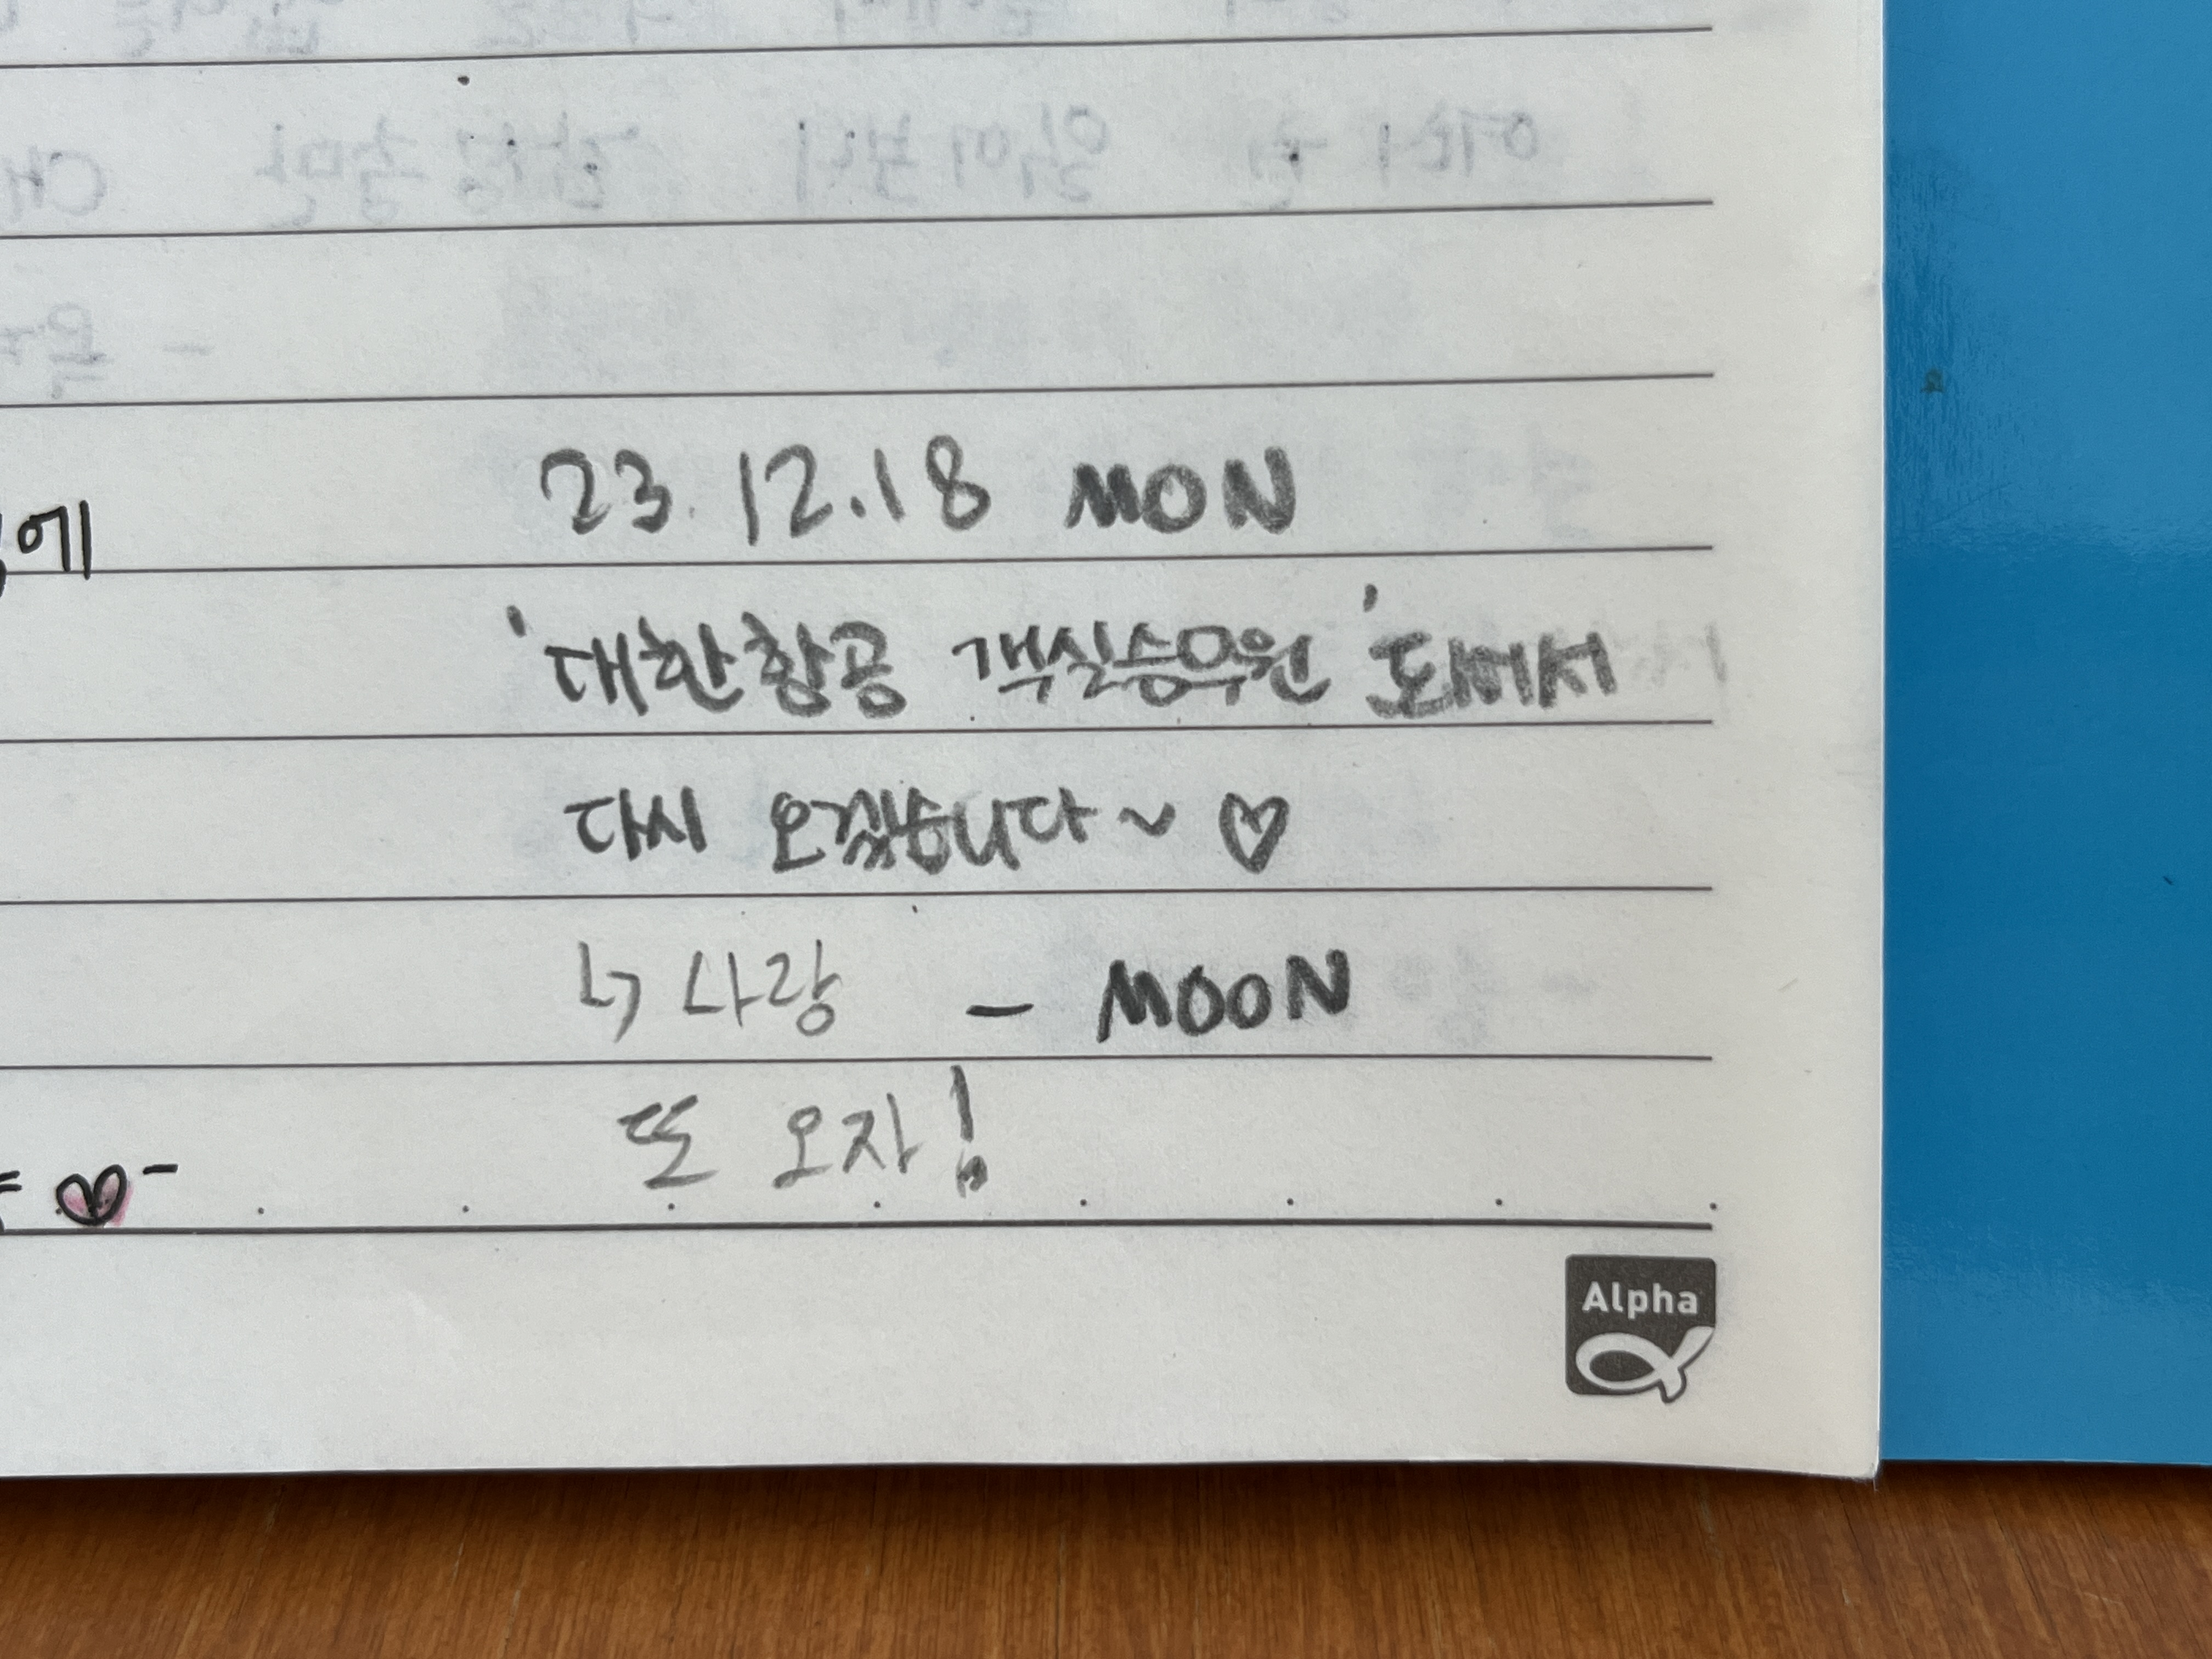 23.12.18 MON
에
'대한항공 객실승무원' 되어서
다시 오겠습니다~ ♡
너사랑 - MOON
또 오자!
♡-
Alpha